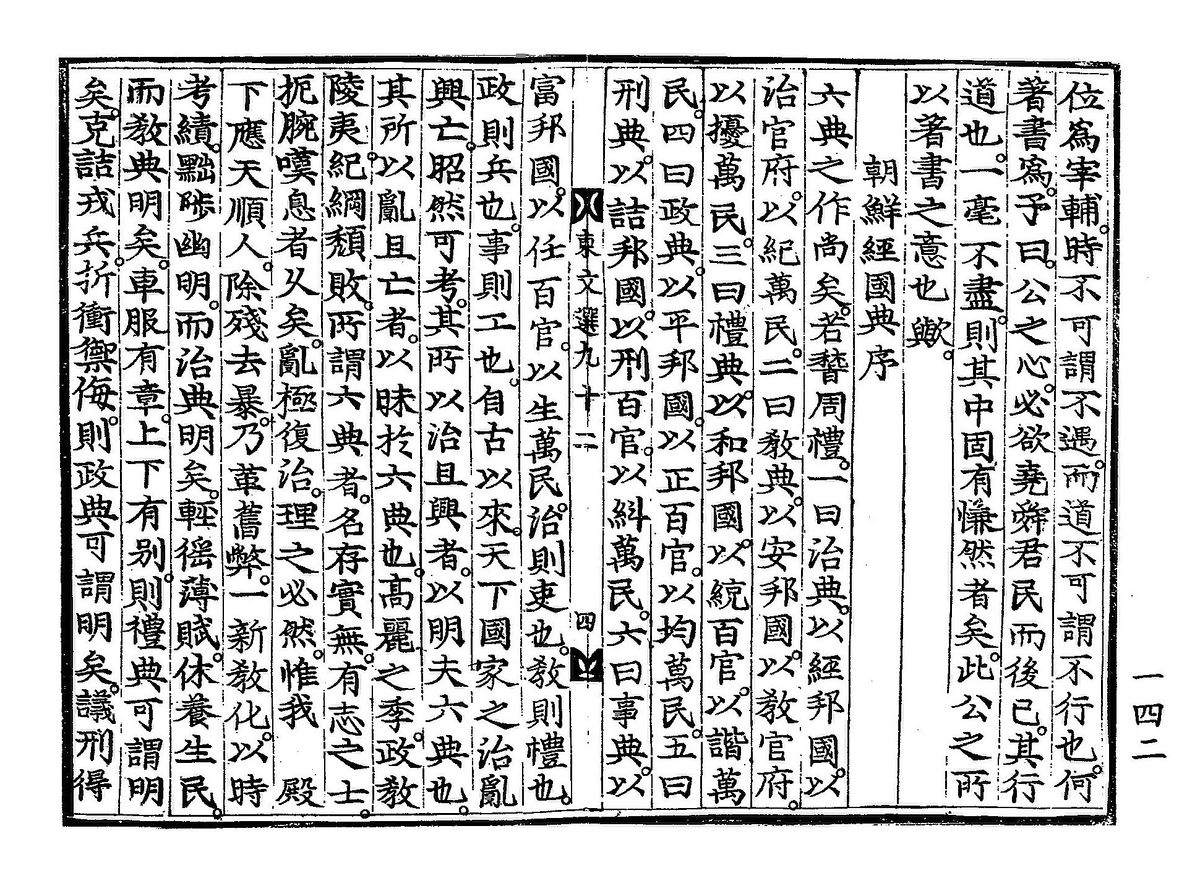 位爲宰輔。時不可謂不遇。而道不可謂不行也。何
著書爲。予曰。公之心。必欲堯舜君民而後已。其行
道也。一毫不盡。則其中固有慊然者矣。此公之所
以著書之意也歟。
朝鮮經國典序
六典之作尙矣。若稽周禮。一曰治典。以經邦國。以
治官府。以紀萬民。二曰敎典。以安邦國。以敎官府。
以擾萬民。三曰禮典。以和邦國。以統百官。以諧萬
民。四曰政典。以平邦國。以正百官。以均萬民。五曰
刑典。以詰邦國。以刑百官。以糾萬民。六曰事典。以
東文選九十二 四
富邦國。以任百官。以生萬民。治則吏也。敎則禮也。
政則兵也。事則工也。自古以來。天下國家之治亂
興亡。昭然可考。其所以治且興者。以明夫六典也。
其所以亂且亡者。以昧於六典也。高麗之季。政敎
陵夷。紀綱頹敗。所謂六典者。名存實無。有志之士。
扼腕嘆息者久矣。亂極復治。理之必然。惟我 殿
下應天順人。除殘去暴。乃革舊弊。一新敎化。以時
考績。黜陟幽明。而治典明矣。輕徭薄賦。休養生民。
而敎典明矣。車服有章。上下有別。則禮典可謂明
矣。克詰戎兵。折衝禦侮。則政典可謂明矣。議刑得
一四二